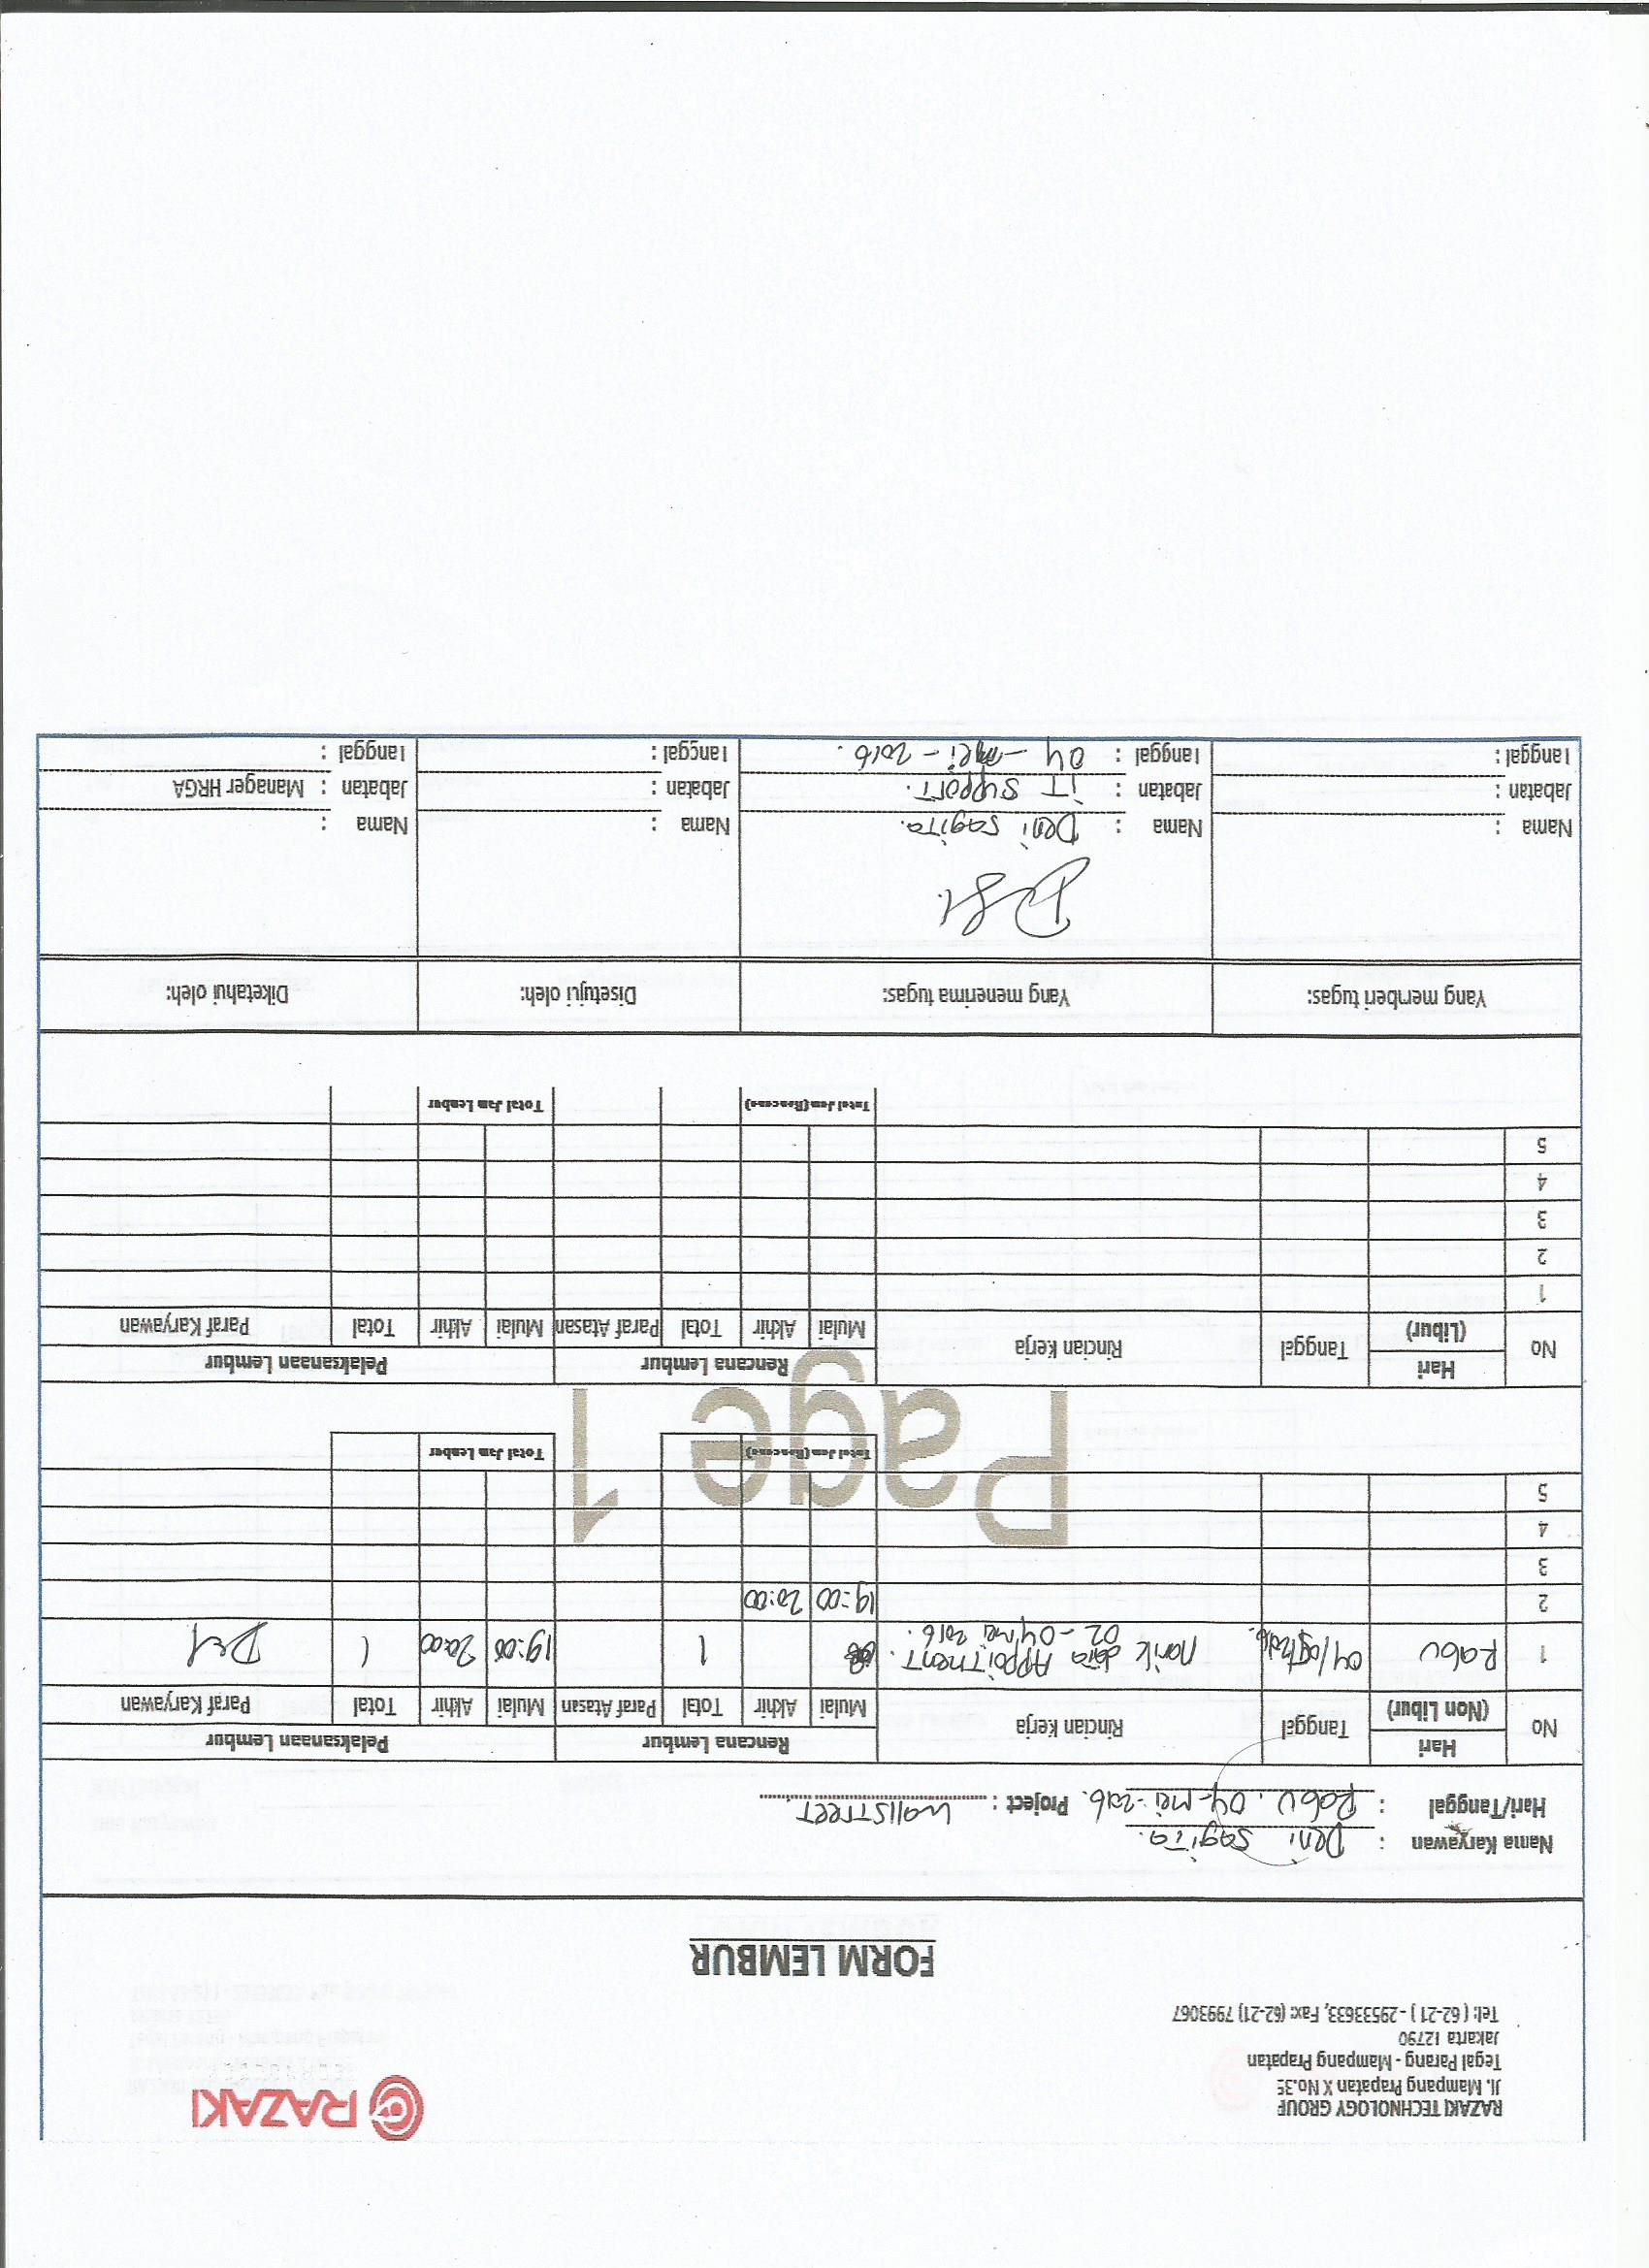 RAZAKI TECHNOLOGY GROUP
Jl. Mampang Prapatan X No.35
Tegal Parang - Mampang Prapatan
Jakarta 12790
Tel: ( 62-21 ) - 29533633, Fax: (62-21) 7993067
RAZAKI
FORM LEMBUR
Nama Karyawan : Deni Sagita.
Hari/Tanggal : Rabu. 04-Mei-2016. Project : Wallstreet
No Hari (Non Libur) Tanggal Rincian Kerja Rencana Lembur Pelaksanaan Lembur
Mulai Akhir Total Paraf Atasan Mulai Akhir Total Paraf Karyawan
1 Rabu 04/05/2016. Narik data APPoiTment. 1 19:00 20:00 1
02 - 04 Mei 2016.
2 19:00 20:00
3
4
5
Page 1
Total Jam (Rencana) Total Jam Lembur
No Hari (Libur) Tanggal Rincian Kerja Rencana Lembur Pelaksanaan Lembur
Mulai Akhir Total Paraf Atasan Mulai Akhir Total Paraf Karyawan
1
2
3
4
5
Total Jam (Rencana) Total Jam Lembur
Yang memberi tugas: Yang menerima tugas: Disetujui oleh: Diketahui oleh:
Nama : Nama : Deni Sagita. Nama : Nama :
Jabatan : Jabatan : iT Support. Jabatan : Jabatan : Manager HRGA
Tanggal : Tanggal : 04 - Mei - 2016. Tanggal : Tanggal :